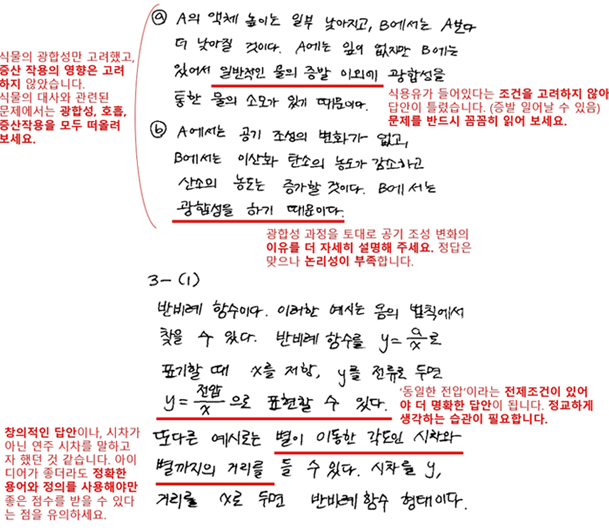 ⓐ A의 액체 높이는 일부 낮아지고, B에서는 A보다
더 낮아질 것이다. A에는 잎이 없지만 B에는
있어서 일반적인 물의 증발 이외에 광합성을
통한 물의 소모가 있기 때문이다.
식물의 광합성만 고려했고,
증산 작용의 영향은 고려
하지 않았습니다.
식물의 대사와 관련된
문제에서는 광합성, 호흡,
증산작용을 모두 떠올려
보세요.
식용유가 들어있다는 조건을 고려하지 않아
답안이 틀렸습니다. (증발 일어날 수 있음)
문제를 반드시 꼼꼼히 읽어 보세요.
ⓑ A에서는 공기 조성의 변화가 없고,
B에서는 이산화 탄소의 농도가 감소하고
산소의 농도는 증가할 것이다. B에서는
광합성을 하기 때문이다.
광합성 과정을 토대로 공기 조성 변화의
이유를 더 자세히 설명해 주세요. 정답은
맞으나 논리성이 부족합니다.
3-(1)
반비례 함수이다. 이러한 예시는 옴의 법칙에서
찾을 수 있다. 반비례 함수를 y=a/x로
표기할 때 x를 저항, y를 전류로 두면
y=전압/x으로 표현할 수 있다.
'동일한 전압'이라는 전제조건이 있어
야 더 명확한 답안이 됩니다. 정교하게
생각하는 습관이 필요합니다.
또다른 예시로는 별이 이동한 각도인 시차와
별까지의 거리를 들 수 있다. 시차를 y,
거리를 x로 두면 반비례함수 형태이다.
창의적인 답안이나, 시차가
아닌 연주 시차를 말하고
자 했던 것 같습니다. 아이
디어가 좋더라도 정확한
용어와 정의를 사용해야만
좋은 점수를 받을 수 있다
는 점을 유의하세요.